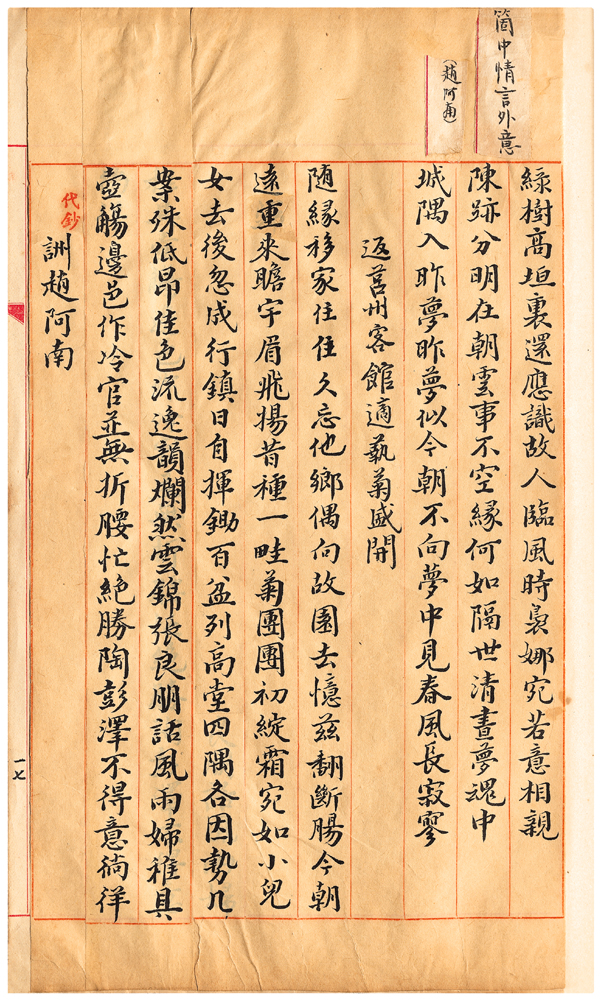 箇中情言外意
(趙阿南)
綠樹高垣裏還應識故人臨風時裊娜宛若意相親
陳跡分明在朝雲事不空緣何如隔世清晝夢魂中
城隅入昨夢昨夢似今朝不向夢中見春風長寂寥
返莒州客館適藝菊盛開
隨緣移家住住久忘他鄉偶向故園去憶茲翻斷腸今朝
遠重來瞻宇眉飛揚昔種一畦菊團團初綻霜宛如小兒
女去後忽成行鎮日自揮鋤百盆列高堂四隅各因勢几
案殊低昂佳色流逸韻爛然雲錦張良朋話風雨婦稚具
壺觴邊邑作冷官並無折腰忙絕勝陶彭澤不得意徜徉
代鈔
訓趙阿南
一七